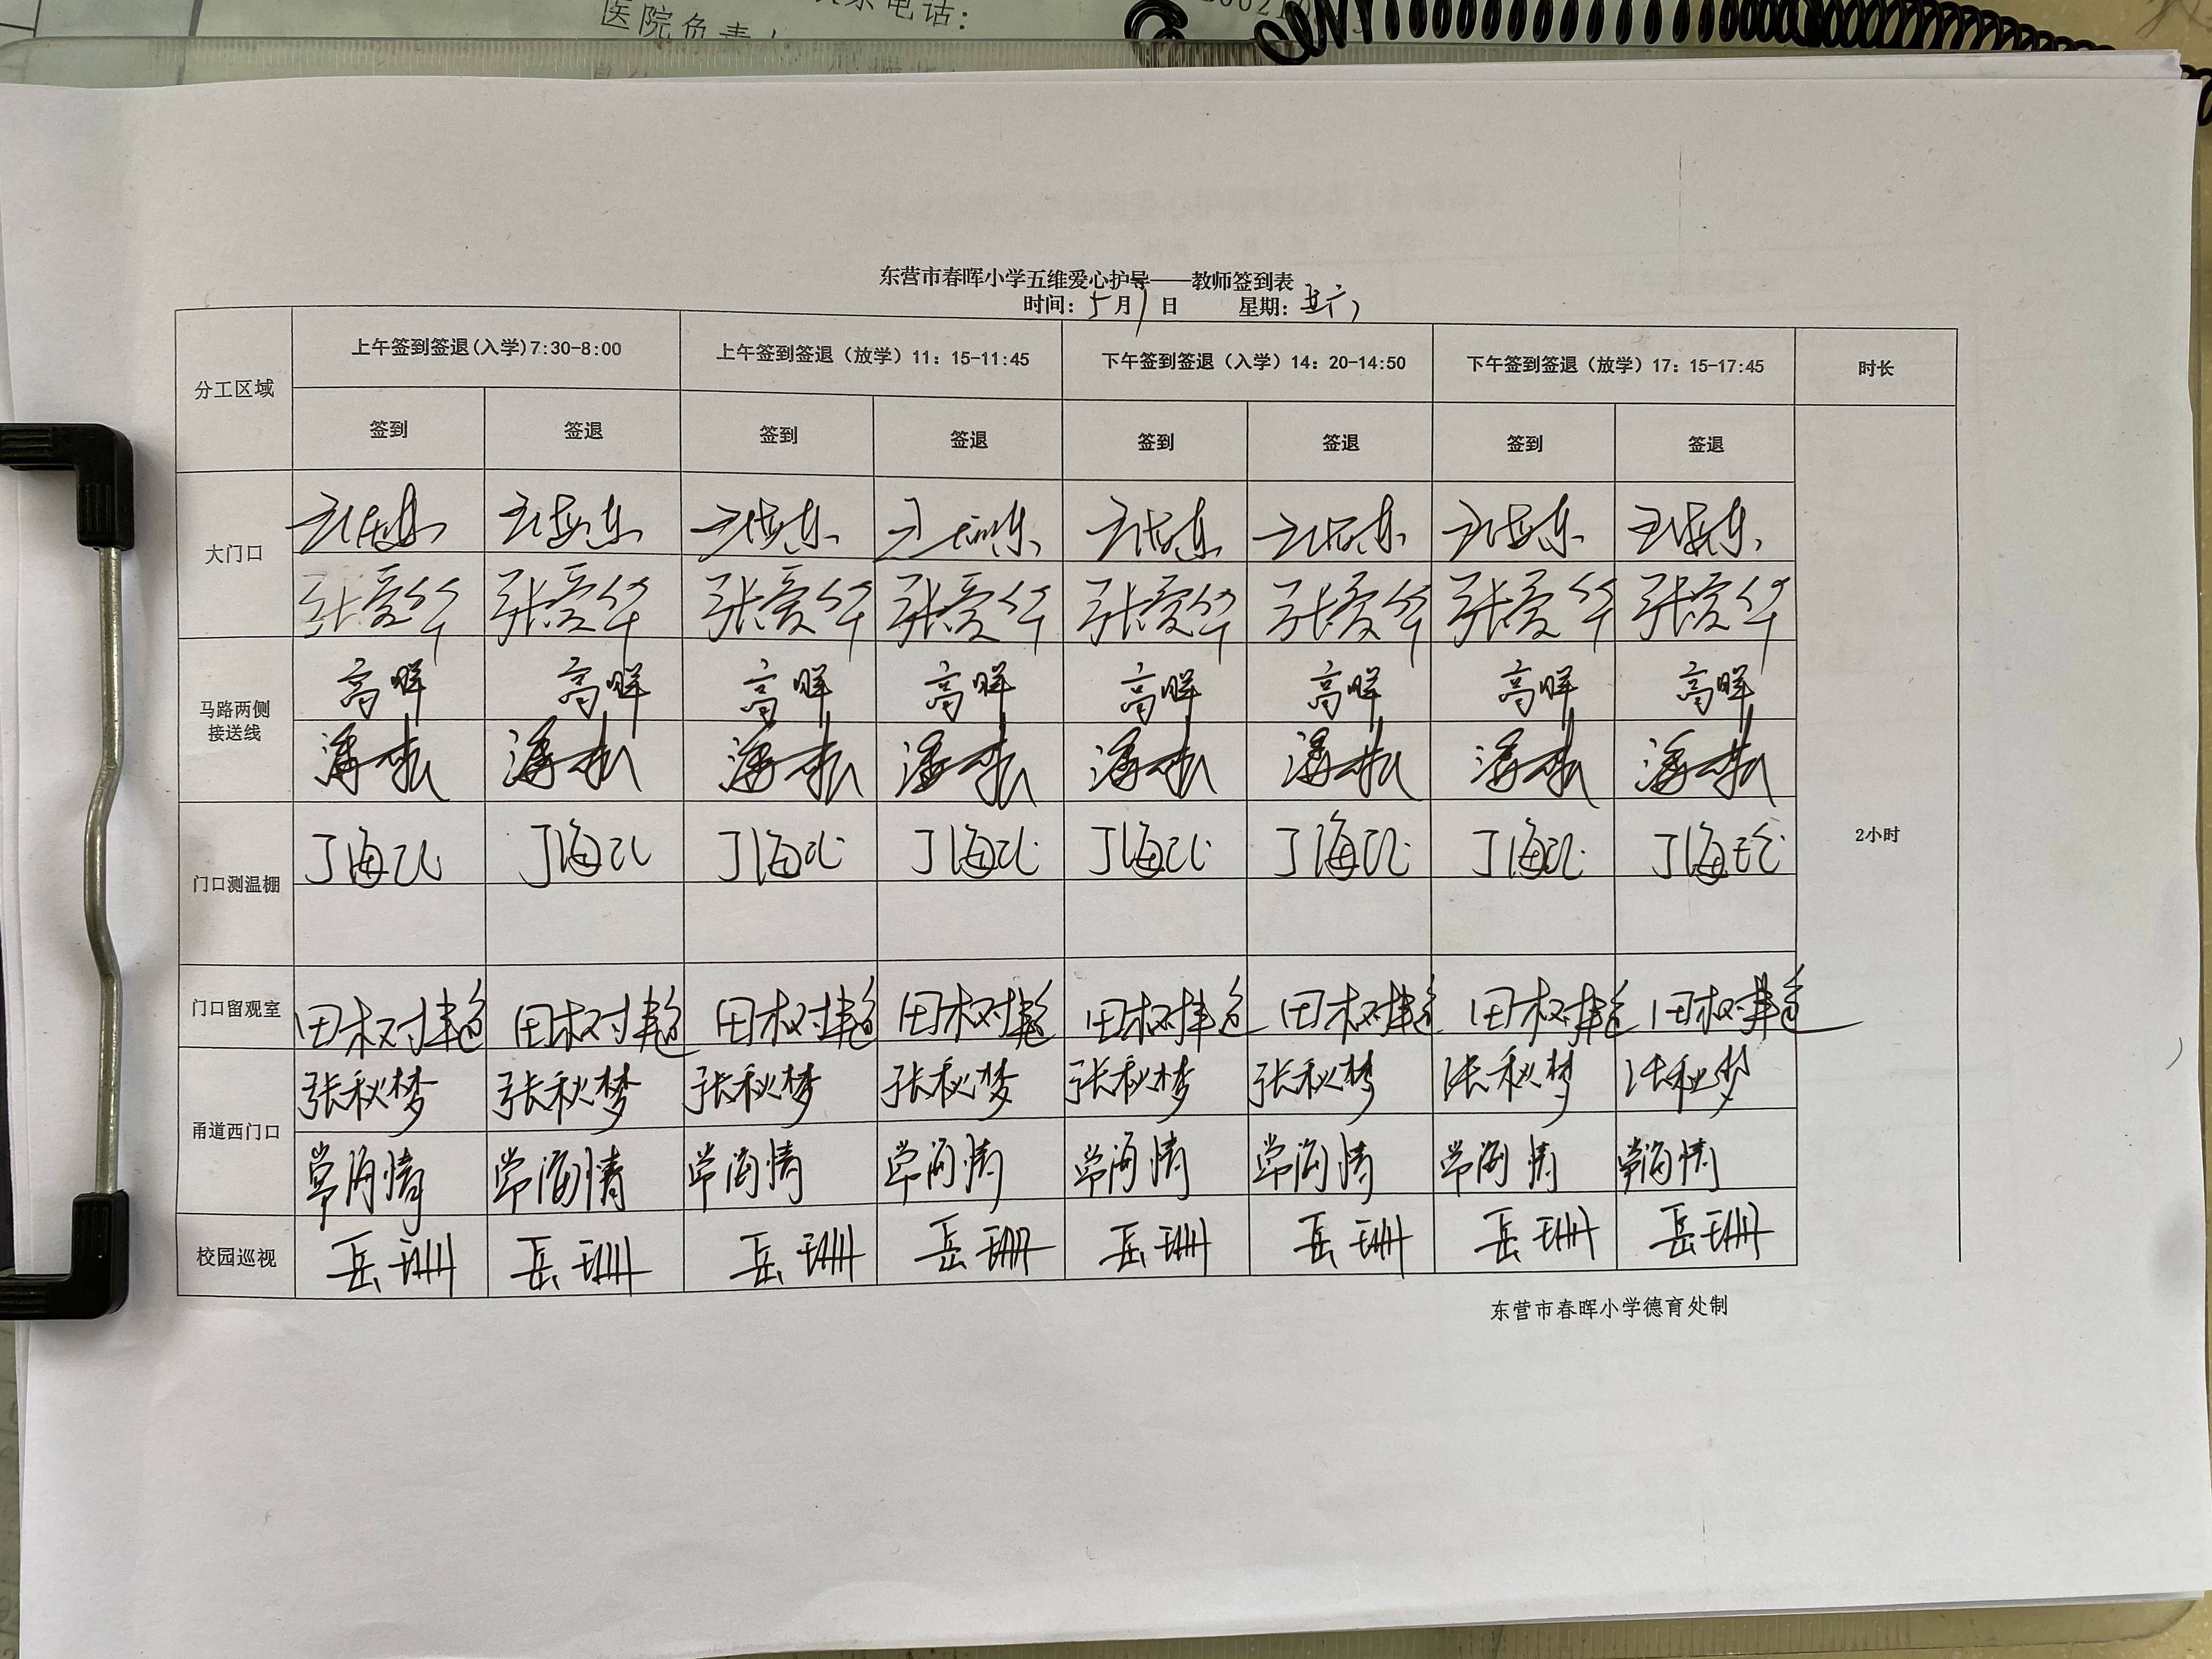 联系电话:
医院负责人
东营市春晖小学五维爱心护导——教师签到表
时间: 5月 日 星期:
分工区域 上午签到签退(入学)7:30-8:00 上午签到签退（放学）11：15-11:45 下午签到签退（入学）14：20-14:50 下午签到签退（放学）17：15-17:45 时长
签到 签退 签到 签退 签到 签退 签到 签退
大门口
王海东 王海东 王海东 王海东 王海东 王海东 王海东 王海东
张爱华 张爱华 张爱华 张爱华 张爱华 张爱华 张爱华 张爱华
马路两侧
接送线
高晖 高晖 高晖 高晖 高晖 高晖 高晖 高晖
潘 潘 潘 潘 潘 潘 潘 潘
门口测温棚
丁海 丁海 丁海 丁海 丁海 丁海 丁海 丁海
2小时
门口留观室 田树 田树 田树 田树 田树 田树 田树 田树
甬道西门口
张秋梦 张秋梦 张秋梦 张秋梦 张秋梦 张秋梦 张秋梦 张秋梦
常海情 常海情 常海情 常海情 常海情 常海情 常海情 常海情
校园巡视 岳珊 岳珊 岳珊 岳珊 岳珊 岳珊 岳珊 岳珊
东营市春晖小学德育处制